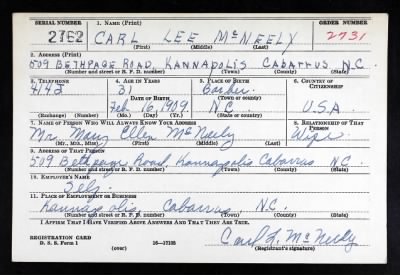 SERIAL NUMBER 1. NAME (Print) ORDER NUMBER
2762 CARL LEE McNEELY 2731
(First) (Middle) (Last)
2. ADDRESS (Print)
509 BETHPAGE ROAD, KANNAPOLIS CABARRUS N.C.
(Number and street or R. F. D. number) (Town) (County) (State)
3. TELEPHONE 4. AGE IN YEARS 5. PLACE OF BIRTH 6. COUNTRY OF CITIZENSHIP
414J 31
DATE OF BIRTH (Town or county)
Feb. 16, 1909 N.C. U.S.A.
(Exchange) (Number) (Mo.) (Day) (Yr.) (State or country)
7. NAME OF PERSON WHO WILL ALWAYS KNOW YOUR ADDRESS 8. RELATIONSHIP OF THAT PERSON
Mrs Mary Ellen McNeely Wife
(Mr., Mrs., Miss) (First) (Middle) (Last)
9. ADDRESS OF THAT PERSON
509 Bethpage Road, Kannapolis Cabarrus N.C.
(Number and street or R. F. D. number) (Town) (County) (State)
10. EMPLOYER'S NAME
Self
11. PLACE OF EMPLOYMENT OR BUSINESS
Kannapolis Cabarrus N.C.
(Number and street or R. F. D. number) (Town) (County) (State)
I AFFIRM THAT I HAVE VERIFIED ABOVE ANSWERS AND THAT THEY ARE TRUE.
REGISTRATION CARD
D. S. S. Form 1 (over) 16—17105 Carl L. McNeely
(Registrant's signature)